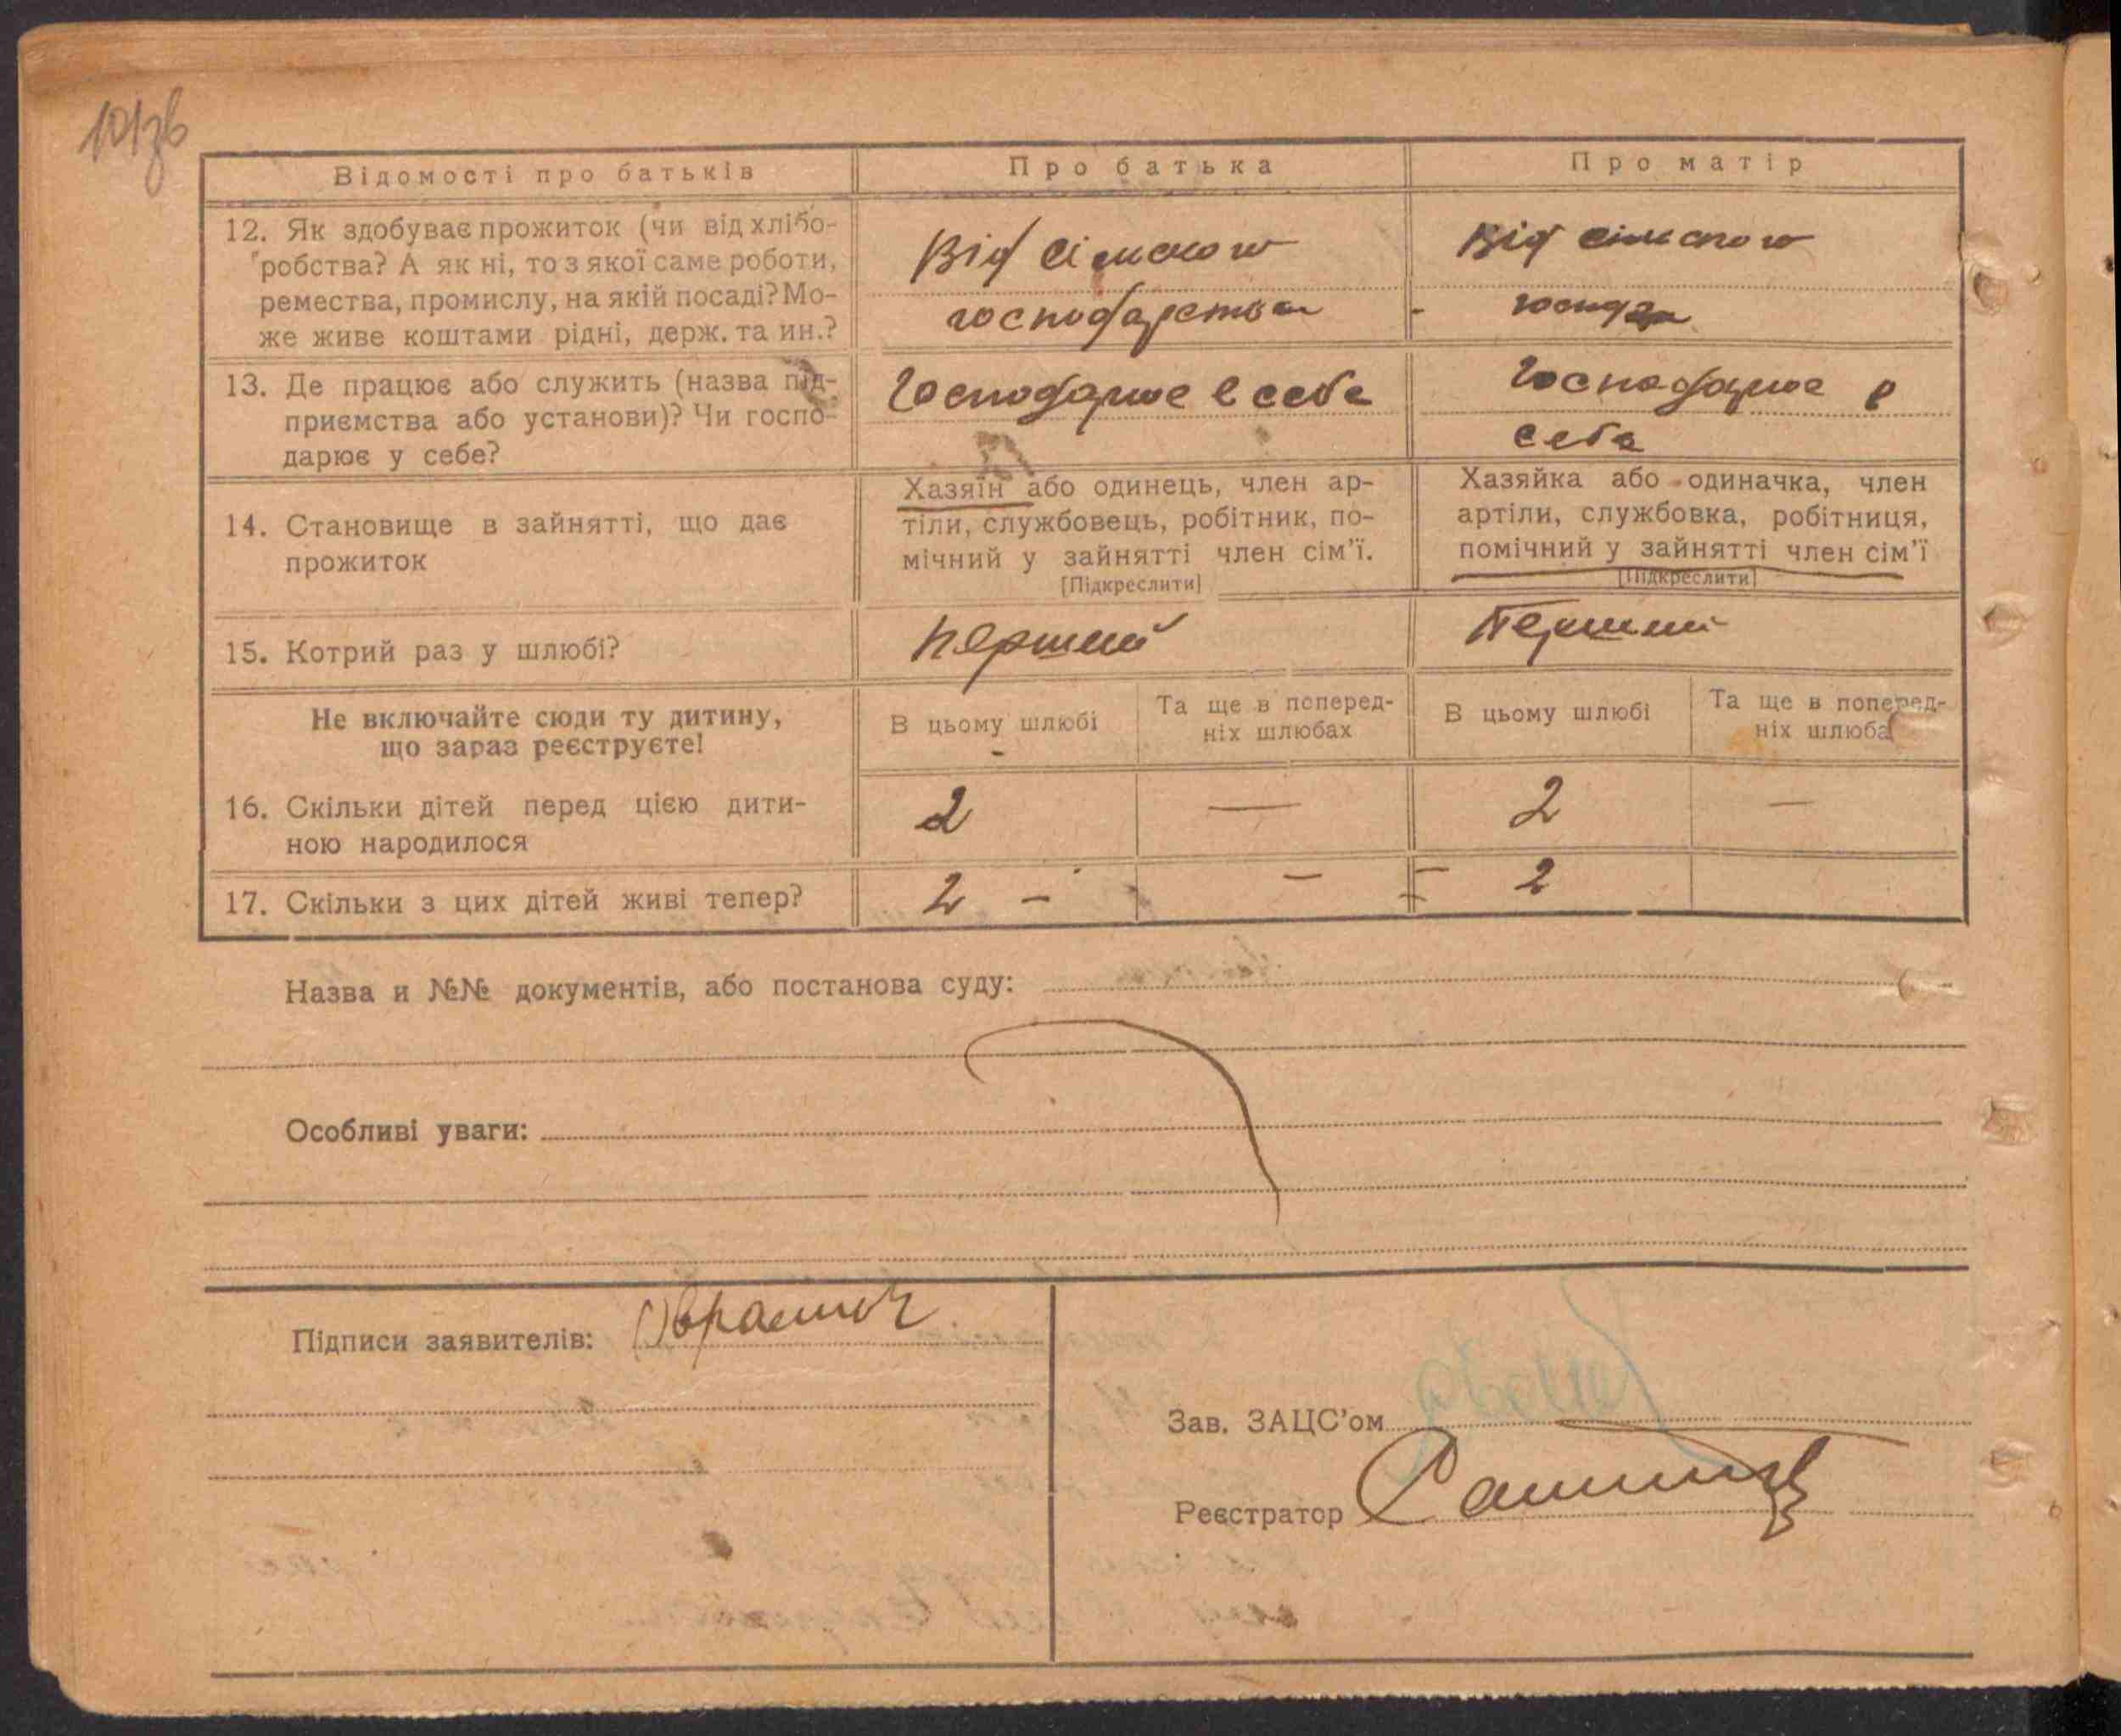 101зв
Відомості про батьків
Про батька
Про матір
12. Як здобуває прожиток (чи від хлібо-
робства? А як ні, то з якої саме роботи,
ремества, промислу, на якій посаді? Мо-
же живе коштами рідні, держ. та ин.?
Від сільского
господарства
Від сільского
13. Де працює або служить (назва під-
приємства або установи)? Чи госпо-
дарює у себе?
Господарює в себе
Господарює в
себе
14. Становище в зайнятті, що дає
прожиток
Хазяїн або одинець, член ар-
тіли, службовець, робітник, по-
мічний у зайнятті член сім'ї.
[Підкреслити]
Хазяйка або одиначка, член
артіли, службовка, робітниця,
помічний у зайнятті член сім'ї
[Підкреслити]
15. Котрий раз у шлюбі?
Перший
Перший
Не включайте сюди ту дитину,
що зараз реєструєте!
В цьому шлюбі
Та ще в поперед-
ніх шлюбах
В цьому шлюбі
Та ще в поперед-
ніх шлюба
16. Скільки дітей перед цією дити-
ною народилося
2 — 2 —
17. Скільки з цих дітей живі тепер?
2 - - - 2
Назва и №№ документів, або постанова суду:
Особливі уваги:
Підписи заявителів:
Зав. ЗАЦС'ом
Реєстратор